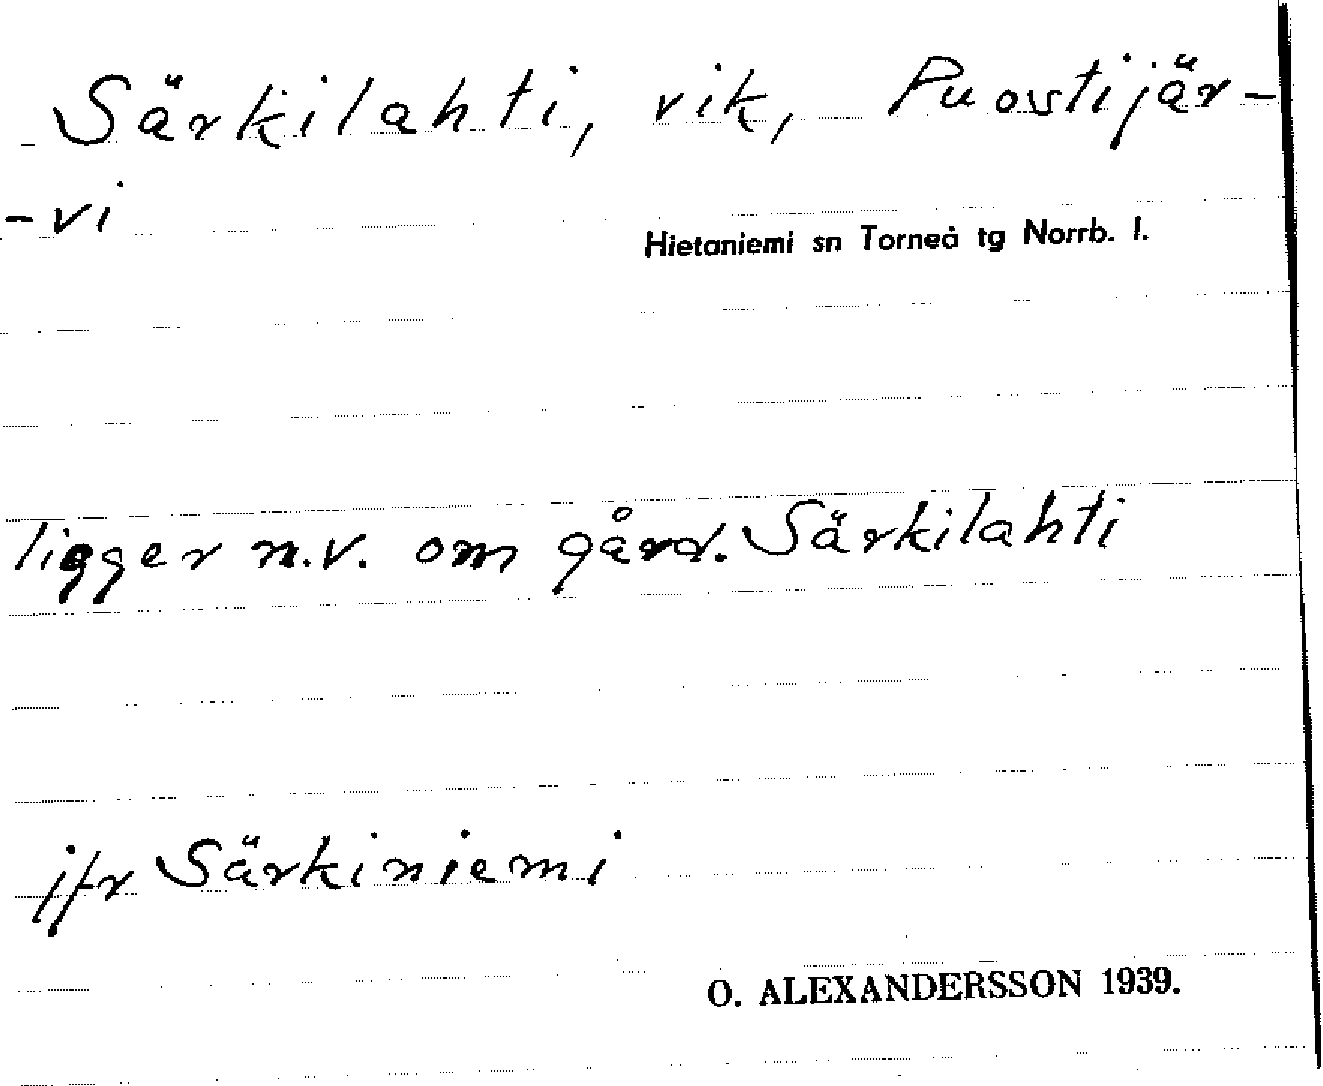 Särkilahti, vik, Puostijär-
-vi
Hietaniemi sn Torneå tg Norrb. l.
ligger n.v. om gård. Särkilahti
jfr Särkiniemi
O. ALEXANDERSSON 1939.